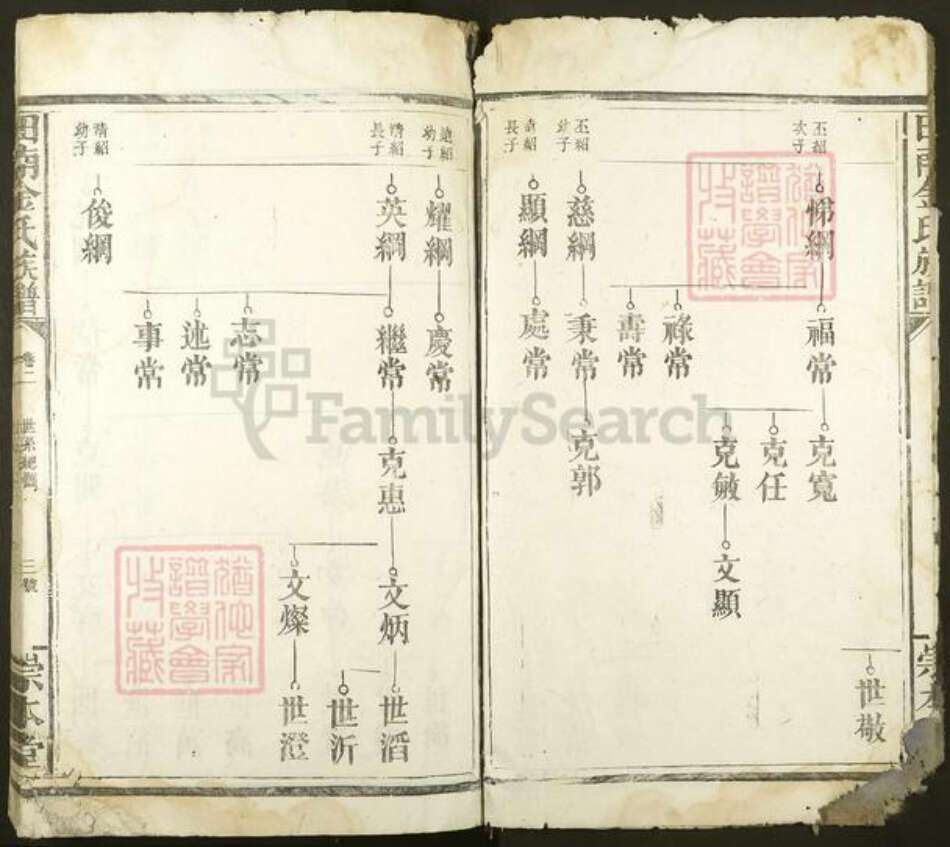 田南金氏族譜
丕紹
次子
悌綱
福常
克寬
克任
克敏
文顯
世㪟
祿常
壽常
丕紹
幼子
慈綱
秉常
克郭
長子
顯綱
處常
幼子
耀綱
慶常
清紹
長子
英綱
繼常
克惠
文炳
世滔
世沂
文燦
世澄
志常
述常
事常
清紹
幼子
俊綱
田南金氏族譜
卷二
世系總圖
三號
崇本堂
猶他家
譜學會
收藏
猶他家
譜學會
收藏
FamilySearch